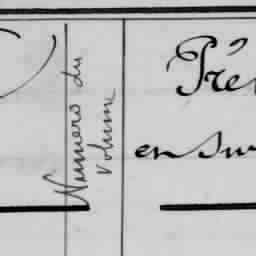 Numéro du
volume
Pré
en sur